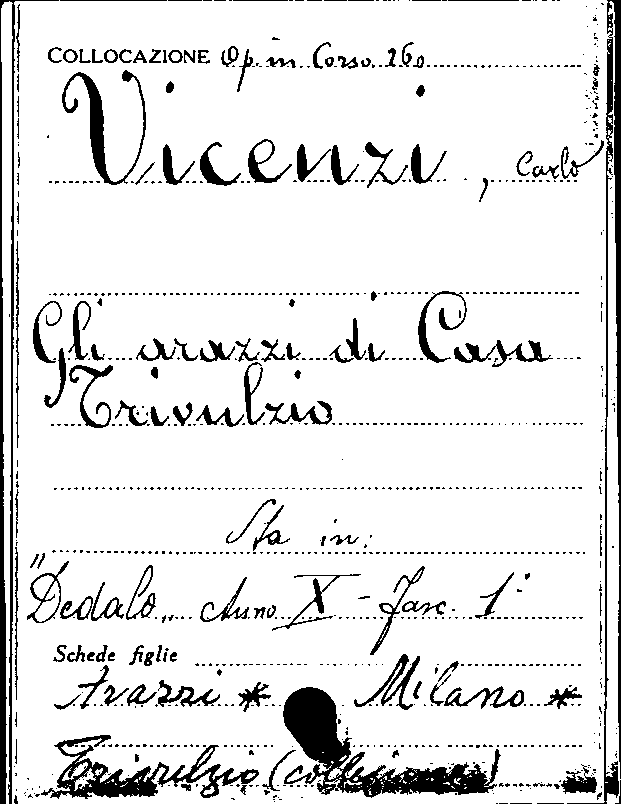 COLLOCAZIONE Op. in Corso 260
Vicenzi, Carlo
Gli arazzi di Casa
Trivulzio
Sta in:
"Dedalo" Anno X - Fasc. 1°
Schede figlie
Arazzi * Milano *
Trivulzio (collezione)